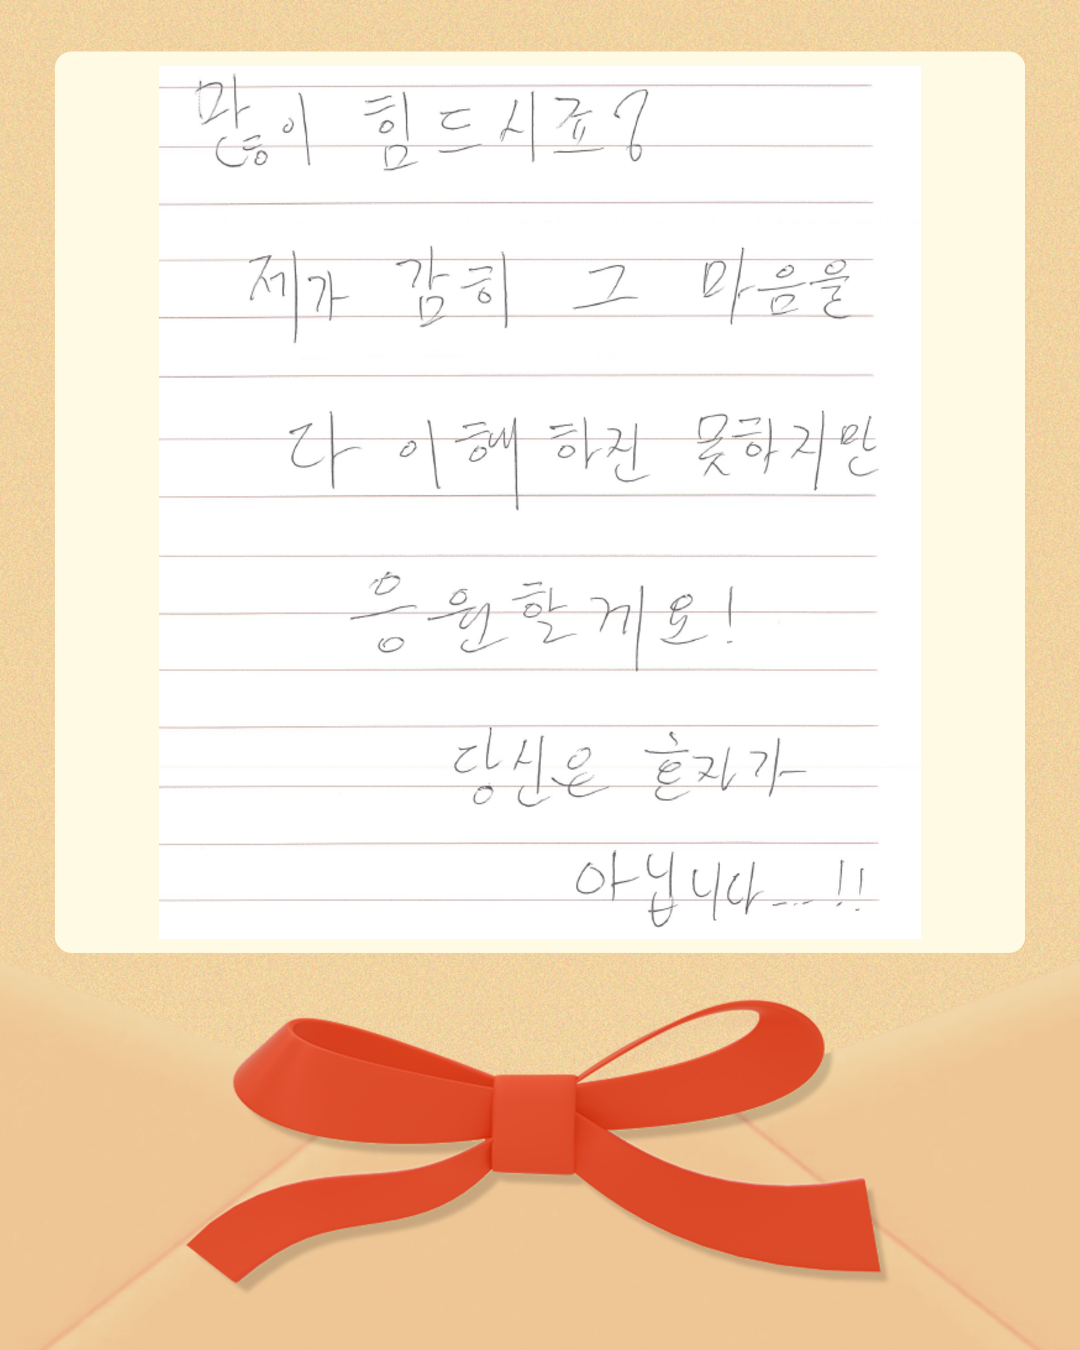 많이 힘드시죠?
제가 감히 그 마음을
다 이해하진 못하지만
응원할게요!
당신은 혼자가
아닙니다....!!